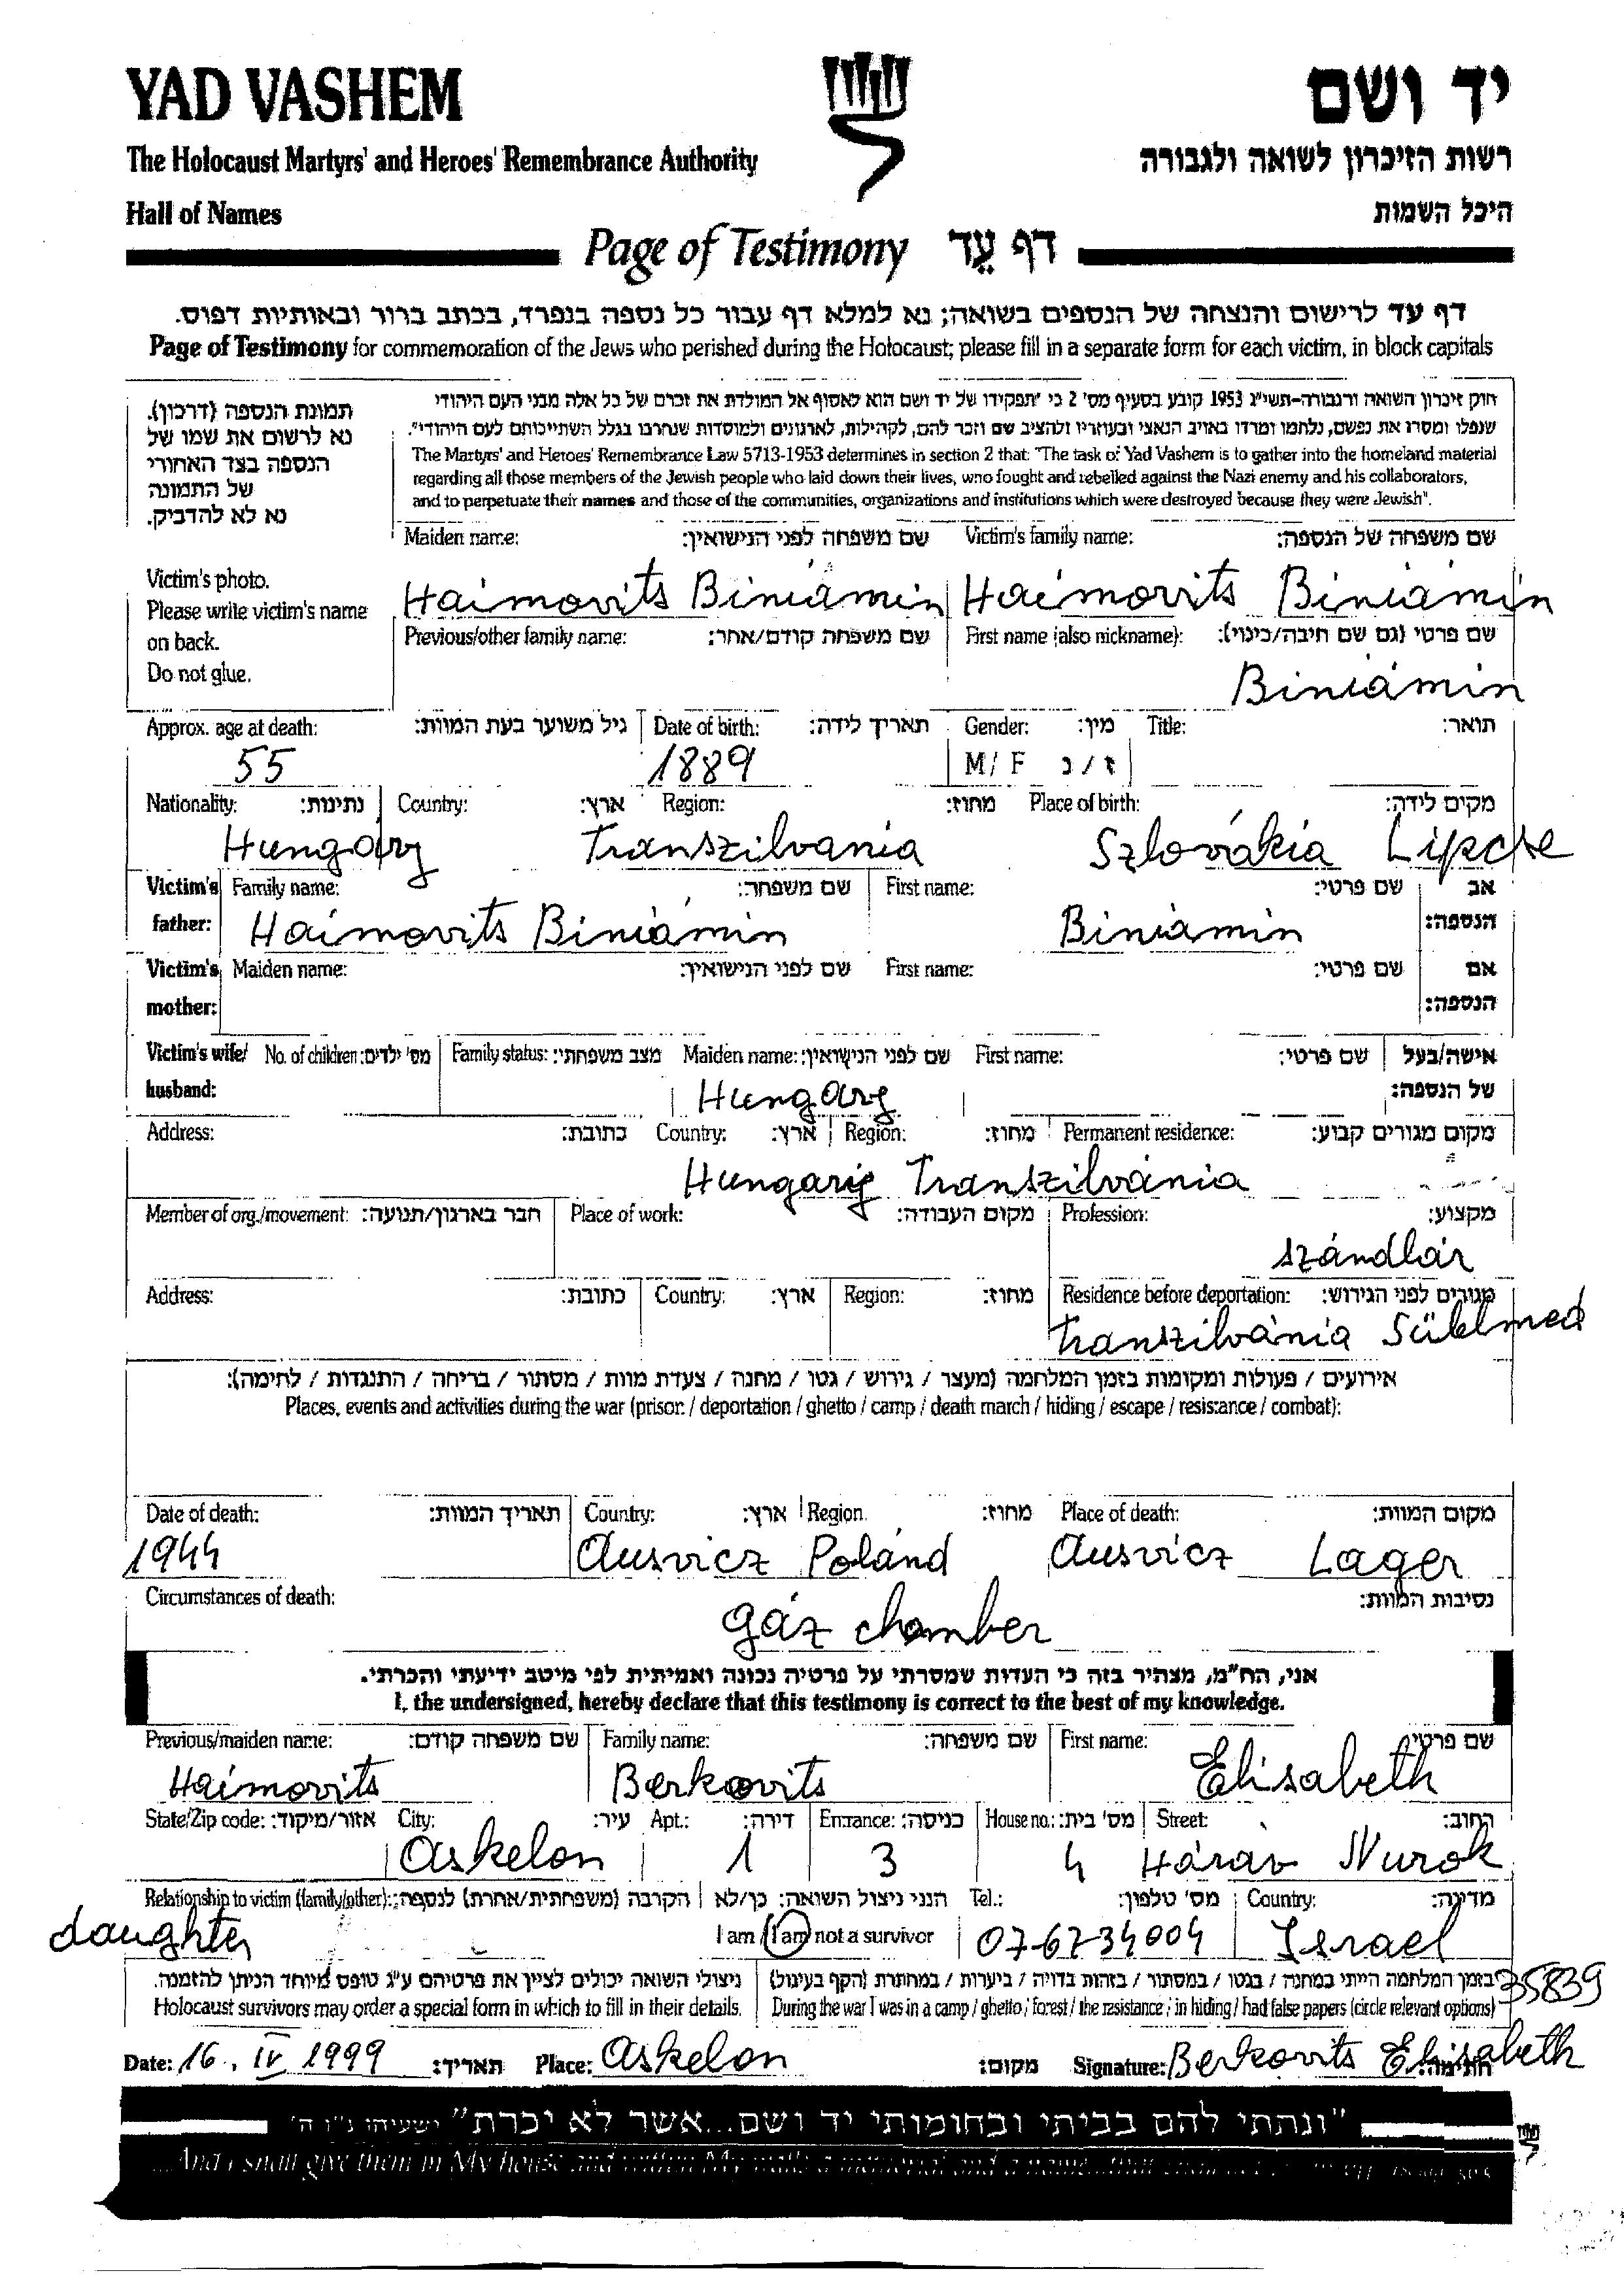 YAD VASHEM
יד ושם
The Holocaust Martyrs' and Heroes' Remembrance Authority
רשות הזיכרון לשואה ולגבורה
Hall of Names
היכל השמות
Page of Testimony דף עֵד
דף עד לרישום והנצחה של הנספים בשואה; נא למלא דף עבור כל נספה בנפרד, בכתב ברור ובאותיות דפוס.
Page of Testimony for commemoration of the Jews who perished during the Holocaust; please fill in a separate form for each victim, in block capitals
תמונת הנספה (דרכון).
נא לרשום את שמו של
הנספה בצד האחורי
של התמונה
נא לא להדביק.
Victim's photo.
Please write victim's name
on back.
Do not glue.
חוק זיכרון השואה והגבורה-תשי"ג 1953 קובע בסעיף מס' 2 כי "תפקידו של יד ושם הוא לאסוף אל המולדת את זכרם של כל אלה מבני העם היהודי
שנפלו ומסרו את נפשם, נלחמו ומרדו באויב הנאצי ובעוזריו ולהציב שם וזכר להם, לקהילות, לארגונים ולמוסדות שנחרבו בגלל השתייכותם לעם היהודי".
The Martyrs' and Heroes' Remembrance Law 5713-1953 determines in section 2 that: "The task of Yad Vashem is to gather into the homeland material
regarding all those members of the Jewish people who laid down their lives, who fought and rebelled against the Nazi enemy and his collaborators,
and to perpetuate their names and those of the communities, organizations and institutions which were destroyed because they were Jewish".
Maiden name: שם משפחה לפני הנישואין: Victim's family name: שם משפחה של הנספה:
Haimovits Biniámin Haimovits Biniámin
Previous/other family name: שם משפחה קודם/אחר: First name (also nickname): שם פרטי (גם שם חיבה/כינוי):
Biniámin
Approx. age at death: גיל משוער בעת המוות: Date of birth: תאריך לידה: Gender: מין: Title: תואר:
55 1889 M/ F ז / נ
Nationality: נתינות: Country: ארץ: Region: מחוז: Place of birth: מקום לידה:
Hungary Transzilvania Szlovákia Lipcse
Victim's father: Family name: שם משפחה: First name: שם פרטי: אב הנספה:
Haimovits Biniámin Biniámin
Victim's mother: Maiden name: שם לפני הנישואין: First name: שם פרטי: אם הנספה:
Victim's wife/ husband: No. of children: מס' ילדים: Family status: מצב משפחתי: Maiden name: שם לפני הנישואין: First name: שם פרטי: אישה/בעל של הנספה:
Hungary
Address: כתובת: Country: ארץ: Region: מחוז: Permanent residence: מקום מגורים קבוע:
Hungarig Transzilvánia
Member of org./movement: חבר בארגון/תנועה: Place of work: מקום העבודה: Profession: מקצוע:
szándlár
Address: כתובת: Country: ארץ: Region: מחוז: Residence before deportation: מגורים לפני הגירוש:
Transzilvánia
אירועים / פעולות ומקומות בזמן המלחמה (מעצר / גירוש / גטו / מחנה / צעדת מוות / מסתור / בריחה / התנגדות / לחימה):
Places, events and activities during the war (prison / deportation / ghetto / camp / death march / hiding / escape / resistance / combat):
Date of death: תאריך המוות: Country: ארץ: Region. מחוז: Place of death: מקום המוות:
1944 Ausvicz Poland Ausvicz Lager
Circumstances of death: נסיבות המוות:
gáz chamber
אני, הח"מ, מצהיר בזה כי העדות שמסרתי על פרטיה נכונה ואמיתית לפי מיטב ידיעתי והכרתי.
I, the undersigned, hereby declare that this testimony is correct to the best of my knowledge.
Previous/maiden name: שם משפחה קודם: Family name: שם משפחה: First name: שם פרטי:
Haimovits Berkovits Elisabeth
State/Zip code: אזור/מיקוד: City: עיר: Apt.: דירה: Entrance: כניסה: House no.: מס' בית: Street: רחוב:
Askelon 1 3 4 Hárav Nurok
Relationship to victim (family/other): הקרבה (משפחתית/אחרת) לנספה: הנני ניצול השואה: כן/לא Tel.: מס' טלפון: Country: מדינה:
daughter I am / I am not a survivor 07-6734004 Israel
ניצולי השואה יכולים לציין את פרטיהם ע"ג טופס מיוחד הניתן להזמנה. בזמן המלחמה הייתי במחנה / בגטו / במסתור / בזהות בדויה / ביערות / במחתרת (הקף בעיגול) 35839
Holocaust survivors may order a special form in which to fill in their details. During the war I was in a camp / ghetto / forest / the resistance / in hiding / had false papers (circle relevant options)
Date: 16. IV 1999 תאריך: Place: Askelon מקום: Signature: Berkovits Elisabeth חתימה:
"ונתתי להם בביתי ובחומותי יד ושם...אשר לא יכרת" ישעיהו נ"ו ה'
...And I shall give them in My house and within My walls a memorial and a name...